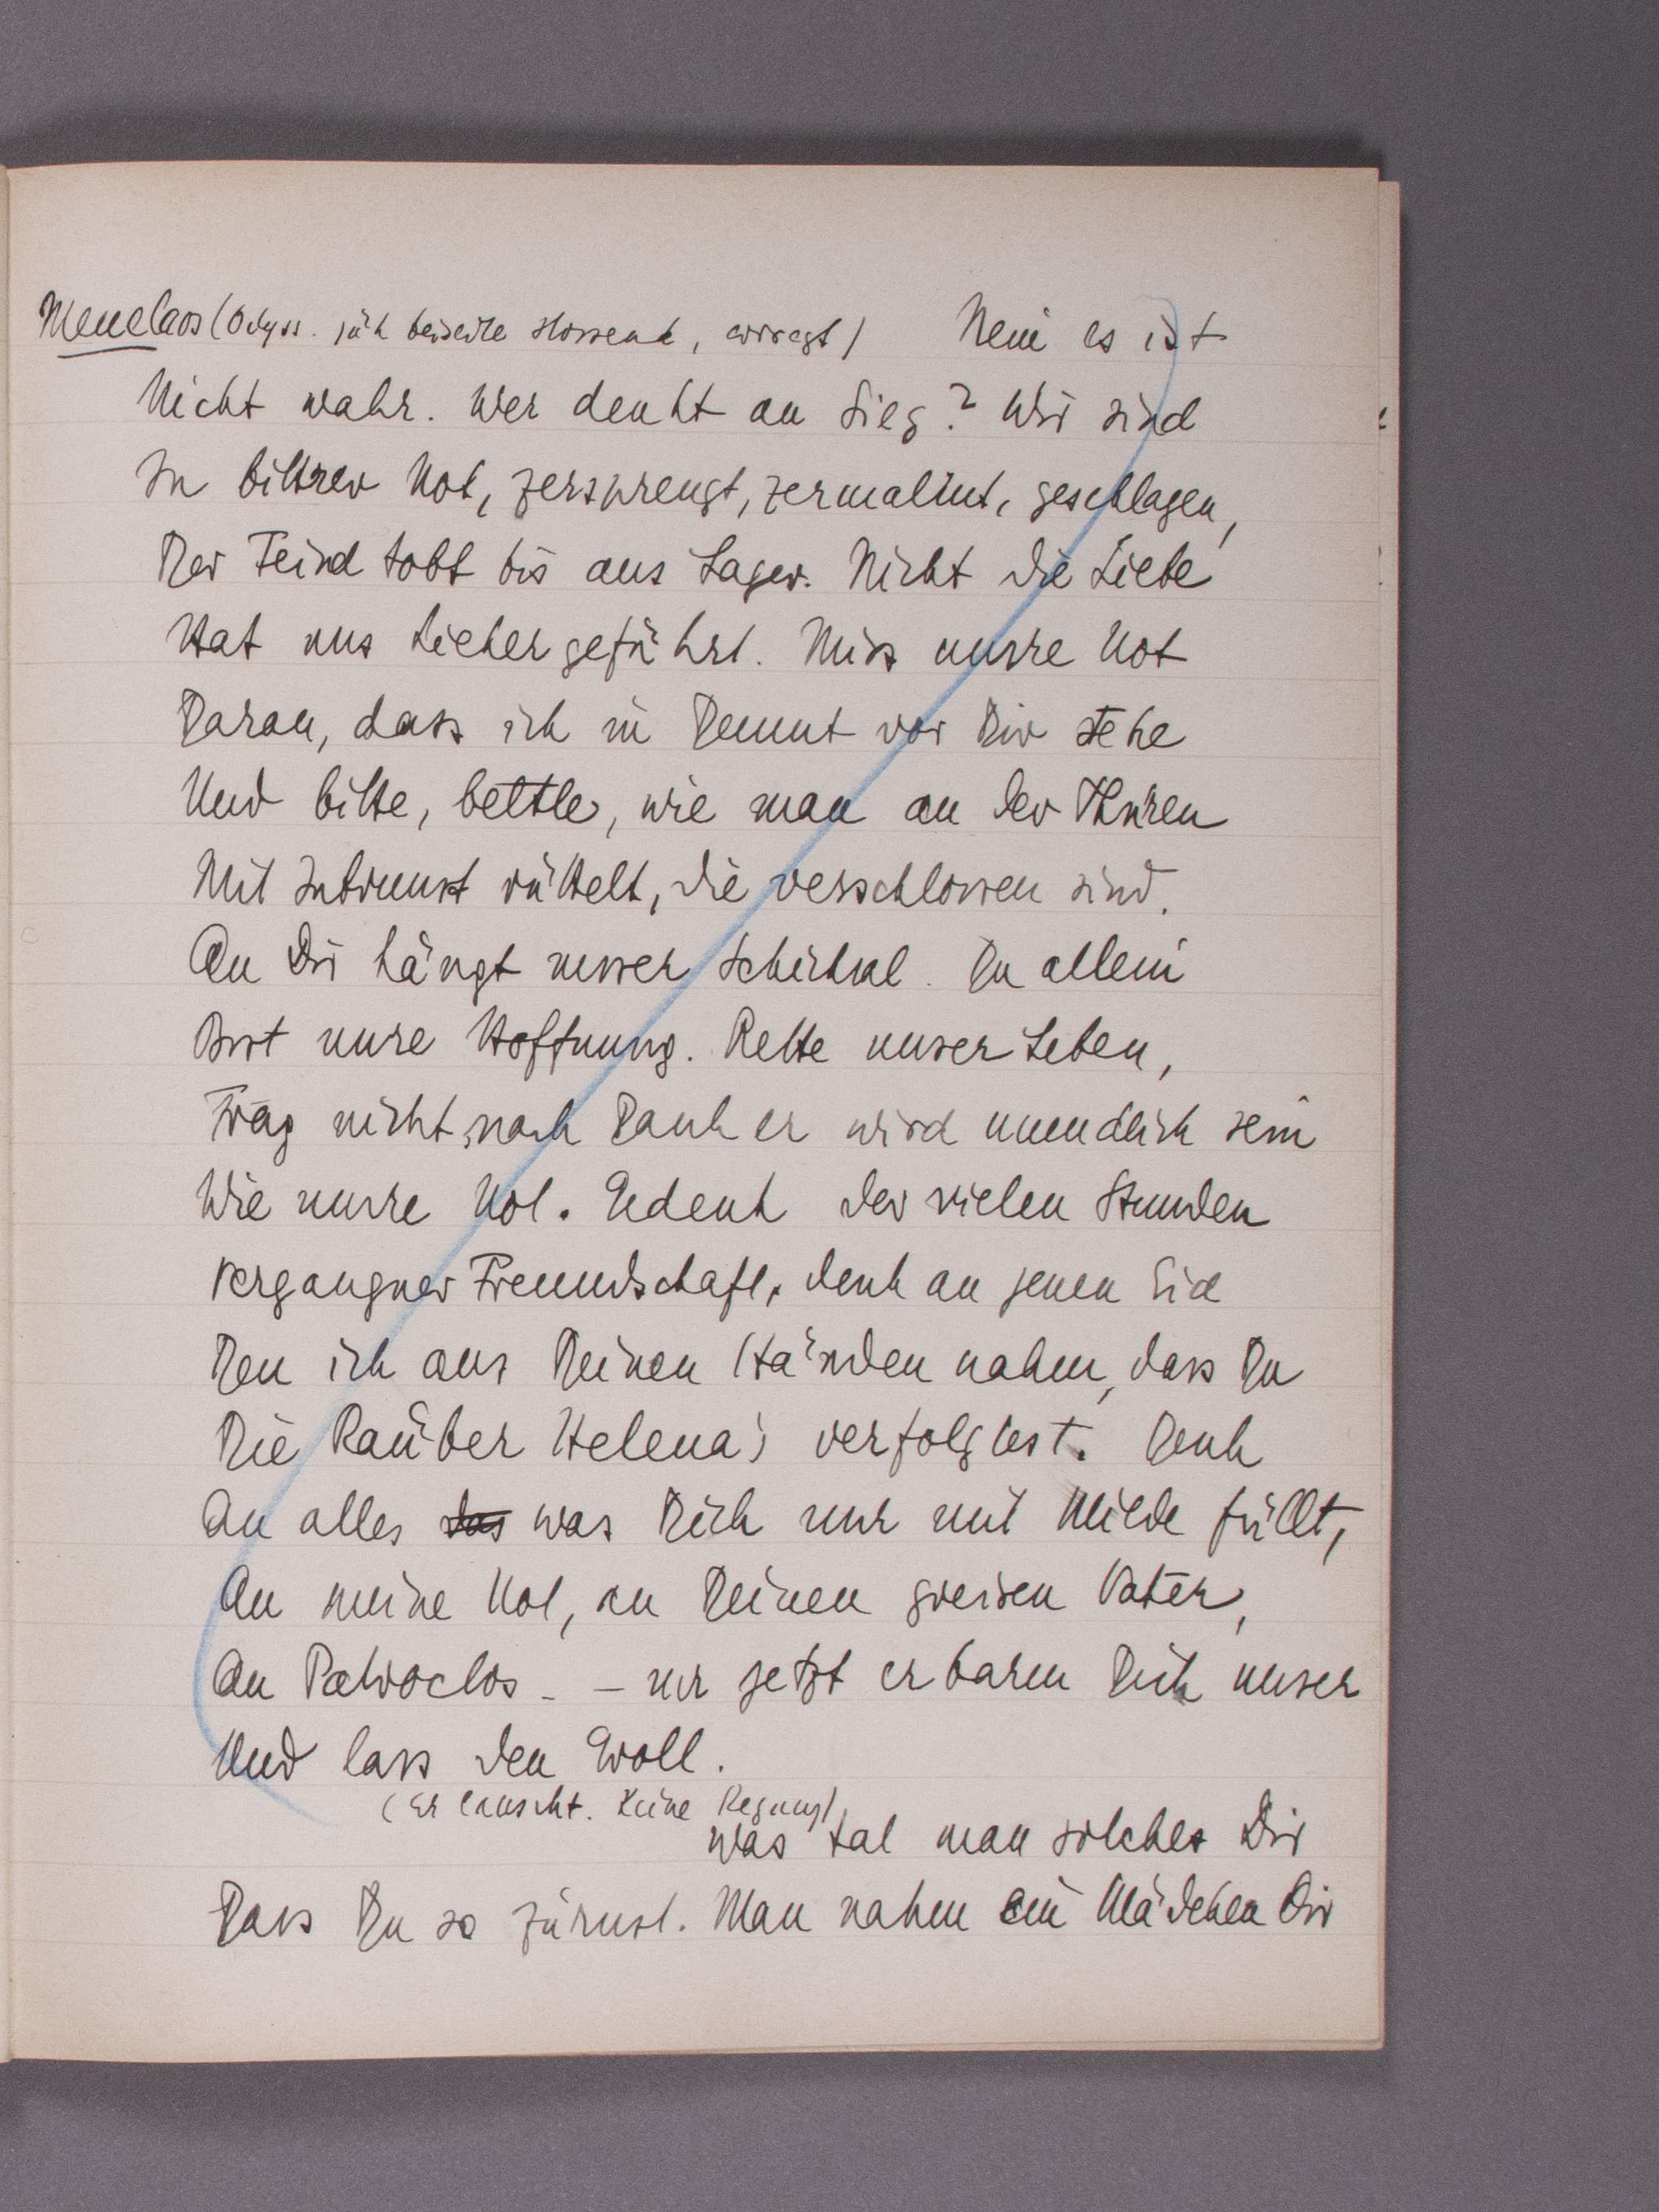 Menelaos (Odyss. jäh beiseite stossend, erregt) Nein es ist
Nicht wahr. Wer denkt an Sieg? Wir sind
In bittrer Not, zersprengt, zermalmt, geschlagen,
Der Feind tobt bis ans Lager. Nicht die Liebe
Hat uns hiehergeführt. Miss unsre Not
Daran, dass ich in Demut vor Dir stehe
Und bitte, bettle, wie man an den Thüren
Mit Inbrunst rüttelt, die verschlossen sind.
An Dir hängt unser Schicksal. Du allein
Bist unsre Hoffnung. Rette unser Leben,
Frag nicht nach Dank er wird unendlich sein
Wie unsre Not. Gedenk der vielen Stunden
Vergangner Freundschaft, denk an jenen Eid
Den ich aus Deinen Händen nahm, dass Du
Die Räuber Helena's verfolgtest. Denk
An alles das was Dich nur mit Milde füllt,
An meine Not, an Deinen greisen Vater,
An Patroclos – – nur jetzt erbarm Dich unser
Und lass den Groll.
(Er lauscht. Keine Regung)
Was tat man solches Dir
Dass Du so zürnst. Man nahm ein Mädchen Dir